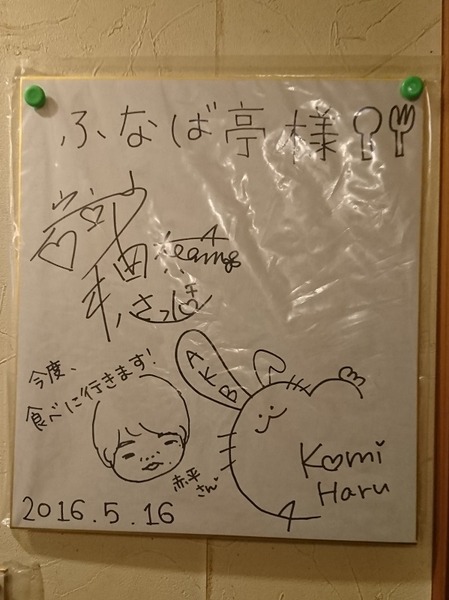 ふなば亭様
Team8
今度、
食べに行きます!
赤平
さん。
AKB
Komi
Haru
2016.5.16